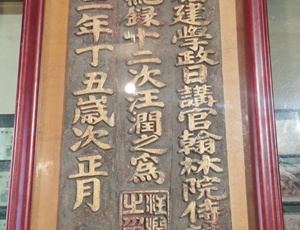 建學政日講官翰林院侍
紀錄十二次汪潤之為
年丁丑歲次正月
汪潤之